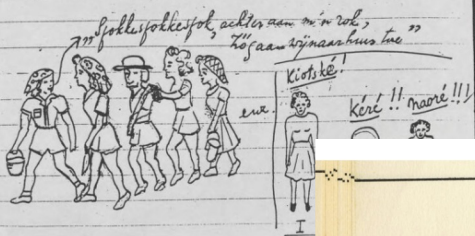 „Sjokkesjokkesjok, achter aan m'n rok,
Zóó gaan wij naar huis toe”
Kiotské!
Kéré!! naoré!!!
enz.
I